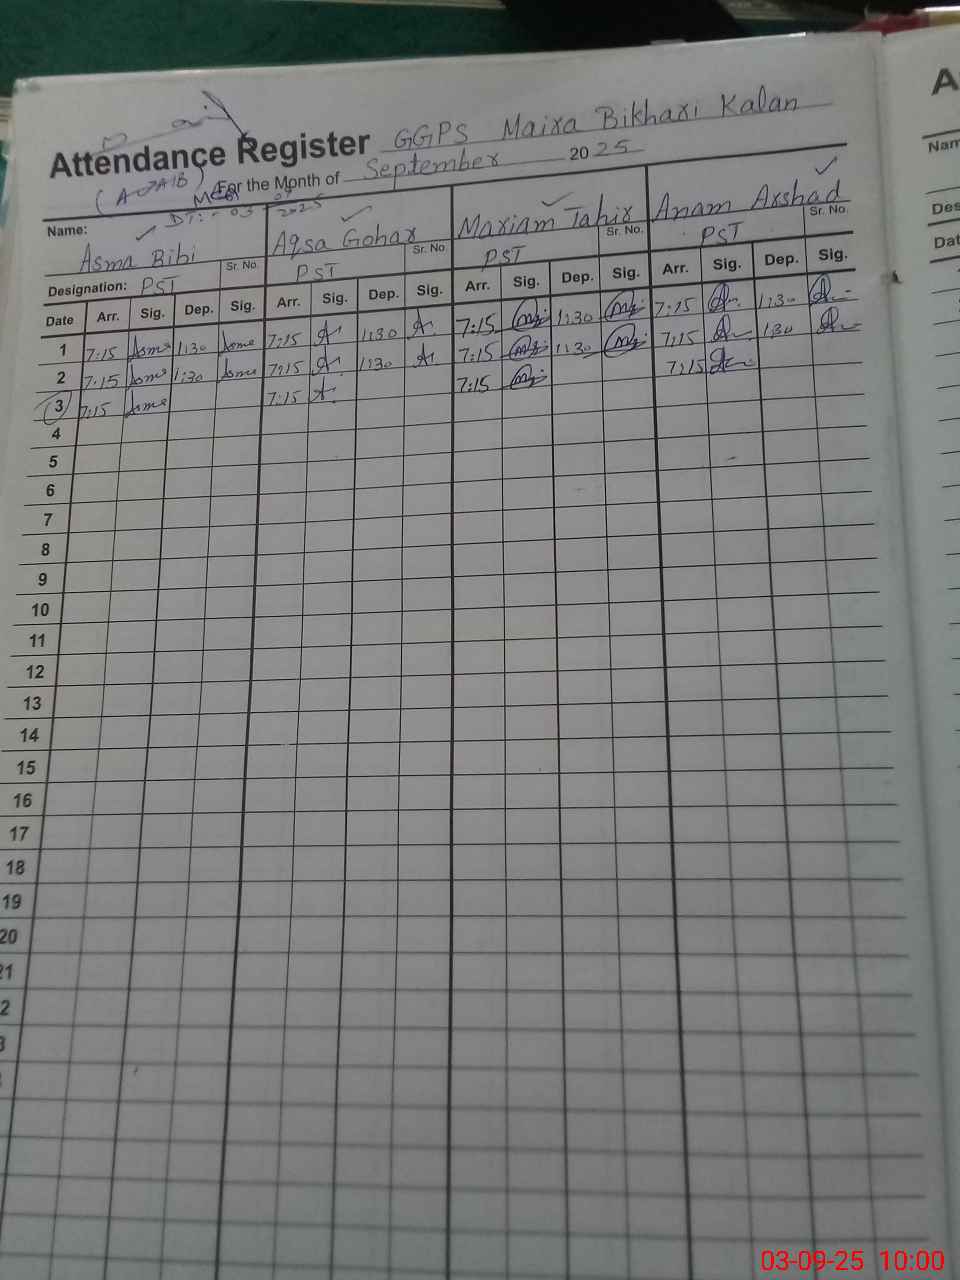 Attendance Register GGPS Maira Bikhari Kalan
For the Month of September 2025
(AOJAIB) MEA
DT:- 03-09-2025
Name: Asma Bibi Aqsa Gohar Mariam Tahir Anam Arshad
Sr. No. Sr. No. Sr. No. Sr. No.
Designation: PST PST PST PST
Date Arr. Sig. Dep. Sig. Arr. Sig. Dep. Sig. Arr. Sig. Dep. Sig. Arr. Sig. Dep. Sig.
1 7:15 Asma 1:30 Asma 7:15 1:30 7:15 1:30 7:15 1:30
2 7:15 Asma 1:30 Asma 7:15 1:30 7:15 1:30 7:15 1:30
3 7:15 Asma 7:15 7:15 7:15
4
5
6
7
8
9
10
11
12
13
14
15
16
17
18
19
20
21
2
3
A
Nam
Des
Dat
03-09-25 10:00